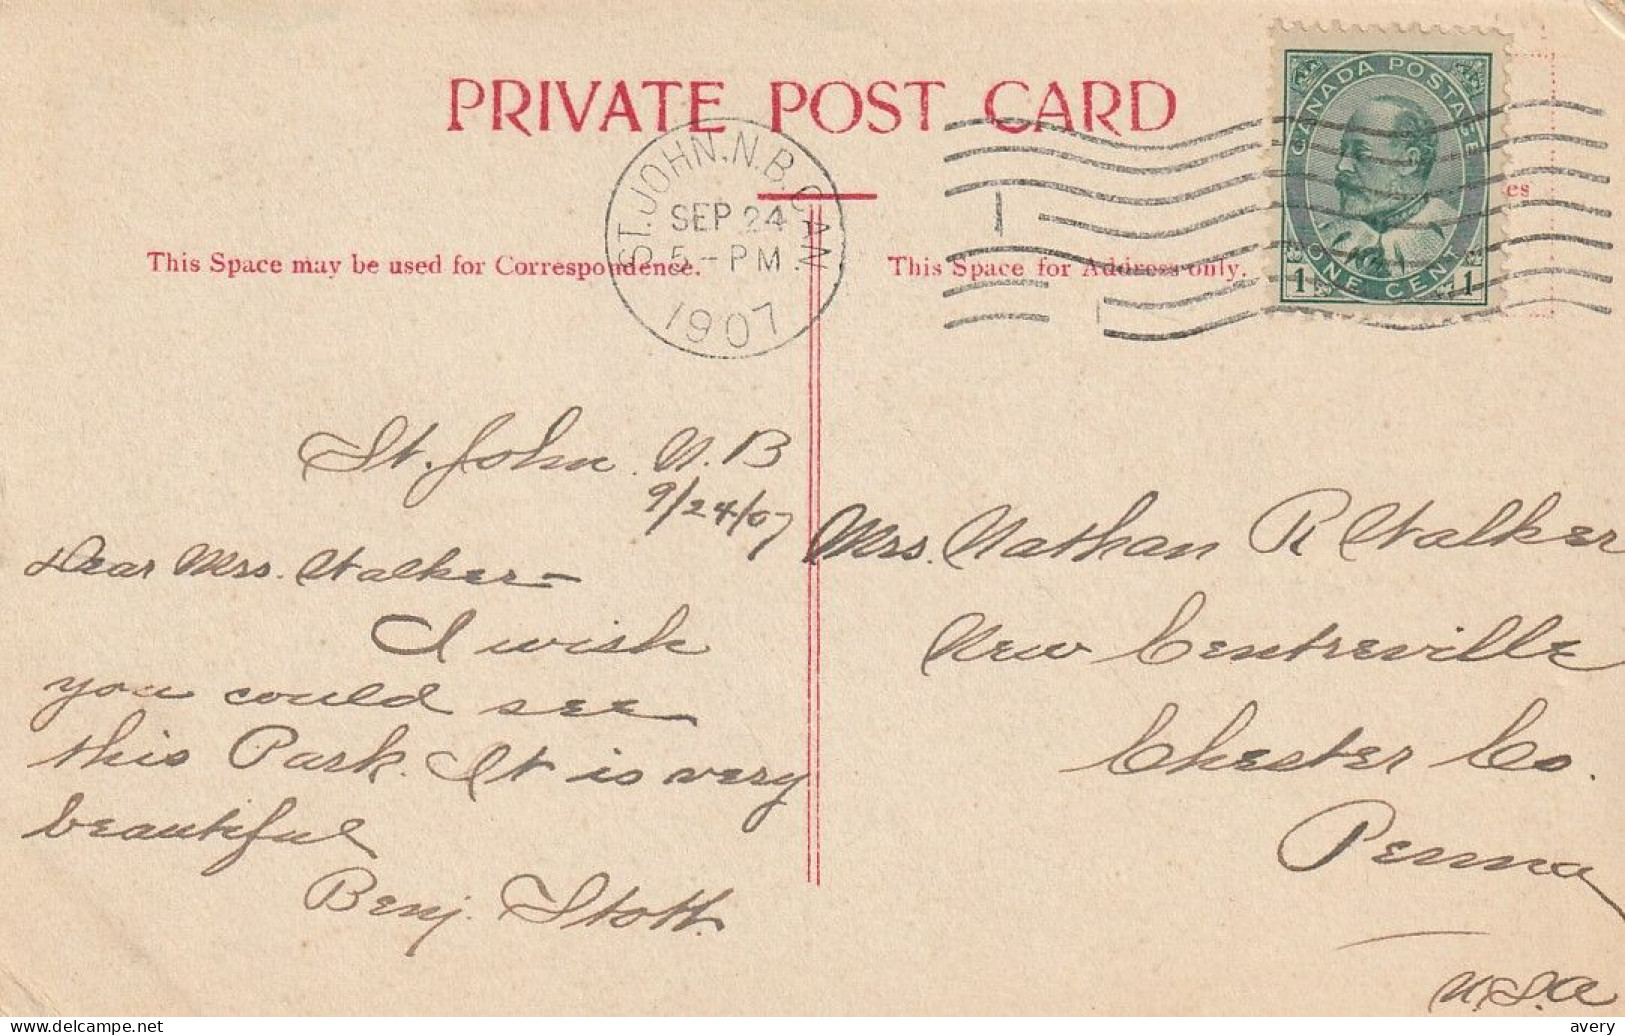 PRIVATE POST CARD
CANADA POSTAGE
ST. JOHN. N.B. CAN
SEP 24
5 - PM
1907
1
es
1 ONE CENT 1
This Space may be used for Correspondence.
This Space for Address only.
St. John N.B
9/24/07
Dear Mrs. Walker-
I wish
you could see
this Park. It is very
beautiful
Benj. Stott.
Mrs. Nathan R Walker
New Centreville
Chester Co.
Penna
U.S.A
avery